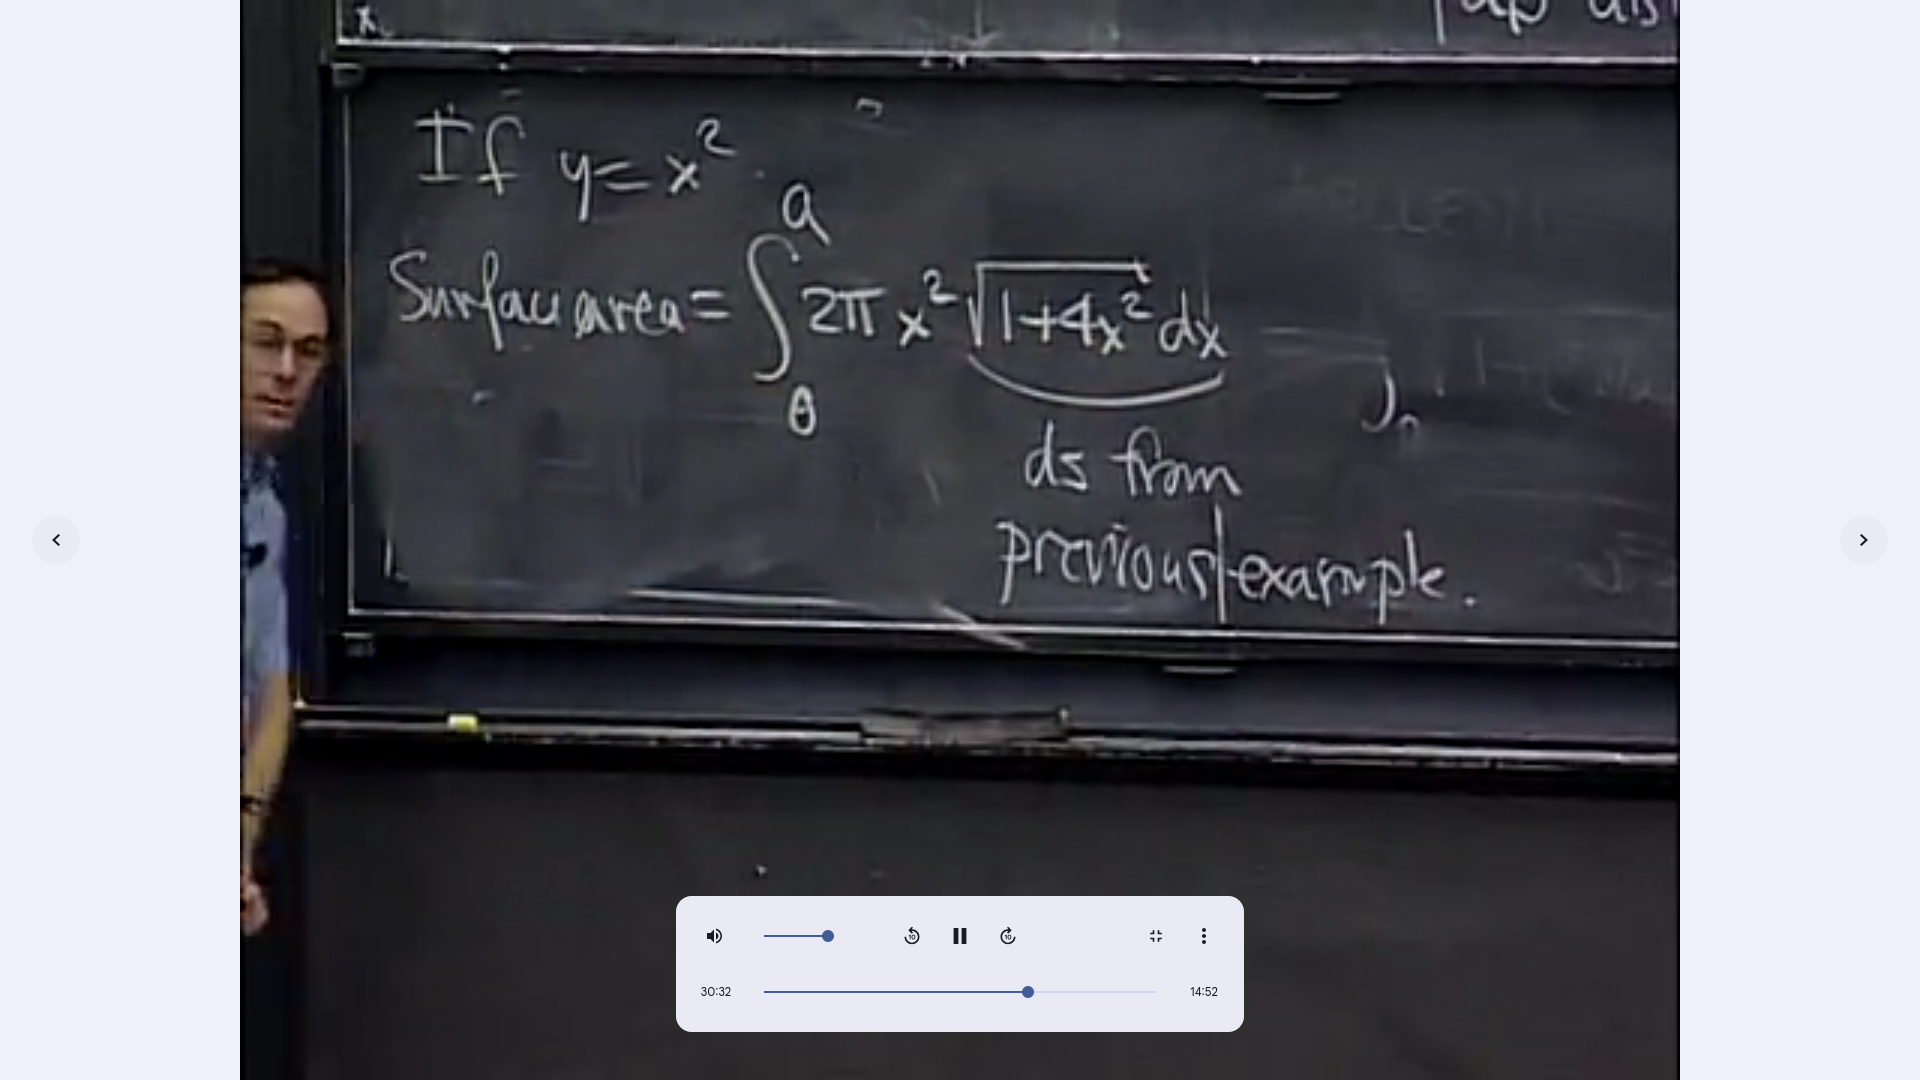 x
If y = x²
Surface area = ∫₀ᵃ 2π x² √(1+4x²) dx
ds from
previous example.
30:32
14:52